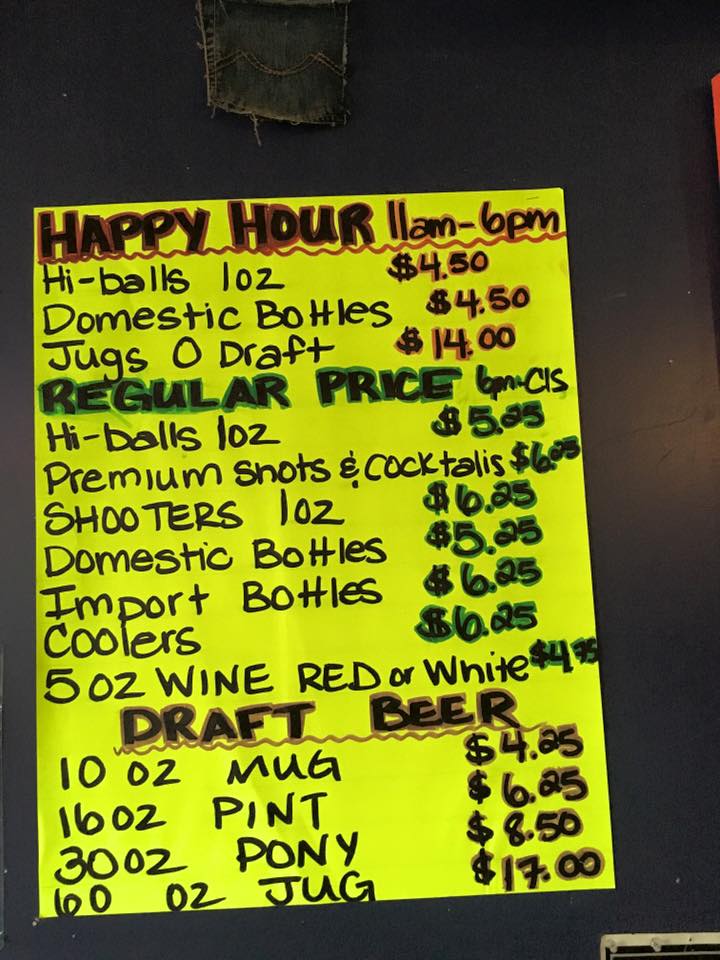 HAPPY HOUR 11am-6pm
Hi-balls 1oz $4.50
Domestic Bottles $4.50
Jugs O Draft $14.00
REGULAR PRICE 6pm-Cls
Hi-balls 1oz $5.25
Premium Shots & Cocktalis $6.25
SHOOTERS 1oz $6.25
Domestic Bottles $5.25
Import Bottles $6.25
Coolers $6.25
5 oz WINE RED or White $4.75
DRAFT BEER
10 oz MUG $4.25
16oz PINT $6.25
30oz PONY $8.50
60 oz JUG $17.00